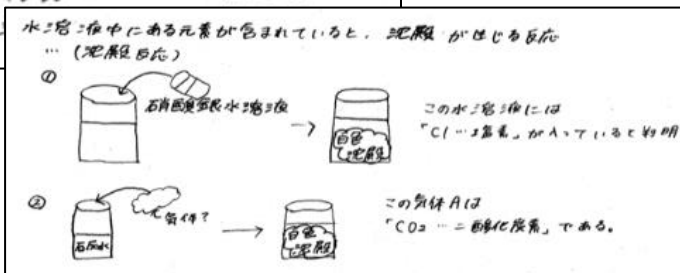 水溶液中にある元素が含まれていると、沈殿が生じる反応
…(沈殿反応)
①
硝酸銀水溶液
→
白色
沈殿
この水溶液には
「Cl…塩素」が入っていると判明
②
気体?
石灰水
→
白色
沈殿
この気体Aは
「CO₂…二酸化炭素」である。